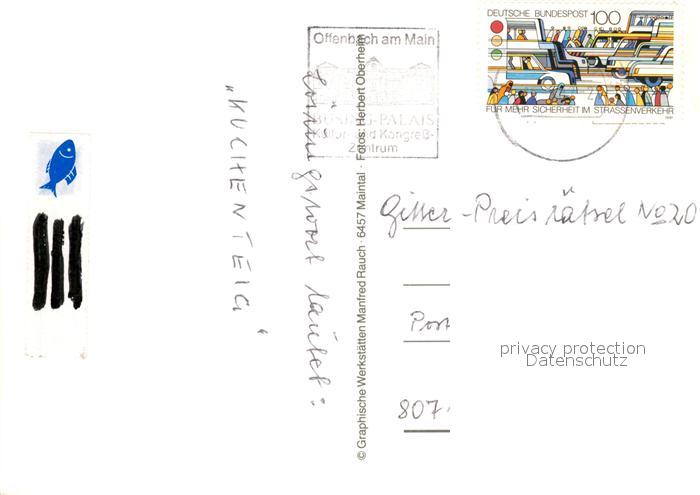 Offenbach am Main
BÜSING-PALAIS
Kultur- und Kongreß-
Zentrum
DEUTSCHE BUNDESPOST 100
FÜR MEHR SICHERHEIT IM STRASSENVERKEHR
Lösungswort lautet:
„KUCHENTEIG“
© Graphische Werkstätten Manfred Rauch · 6457 Maintal · Fotos: Herbert Oberheim
Gitter-Preisrätsel No 20
Post
807
privacy protection
Datenschutz